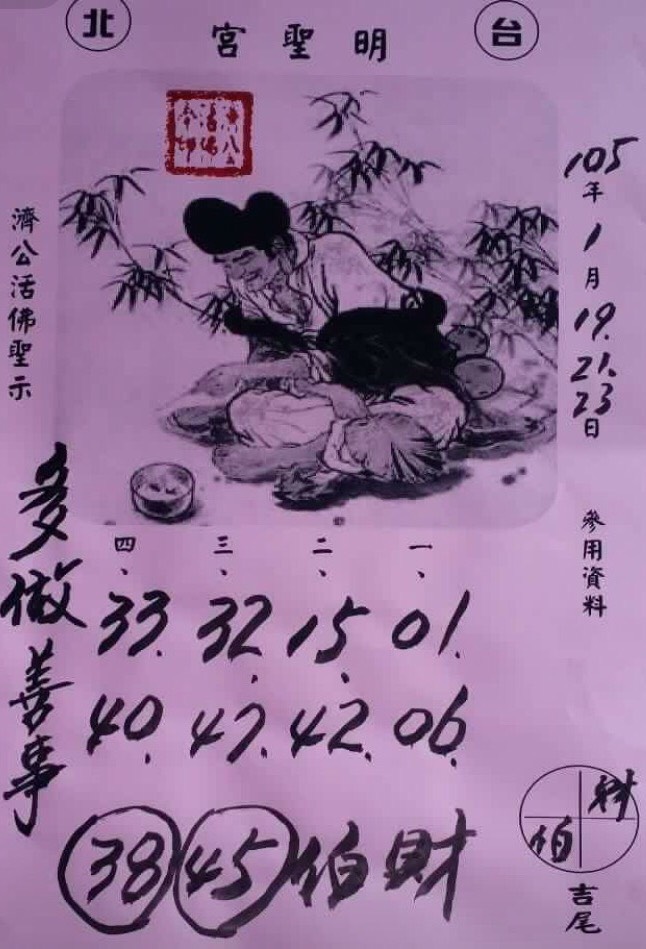 台 明聖宮 北
105年1月19.21.23日
參用資料
濟公活佛聖示
一、 01. 06.
二、 15. 42.
三、 32. 47.
四、 33. 40.
多做善事
38 45 伯財
財
伯
吉尾